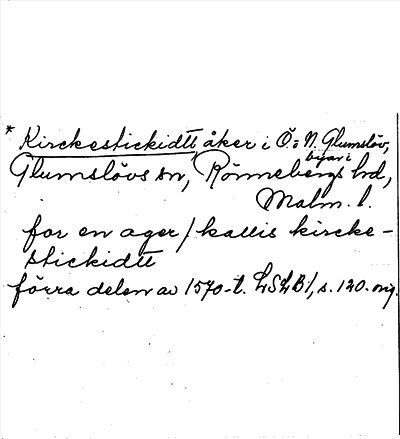 * Kirckestickidtt åker i Ö. o N. Glumslöv,
byar i
Glumslövs sn, Rönnebergs hd,
Malm. l.
for en ager / kallis kircke-
stickidtt
förra delen av 1570-t. LSLB1, s. 120. orig.